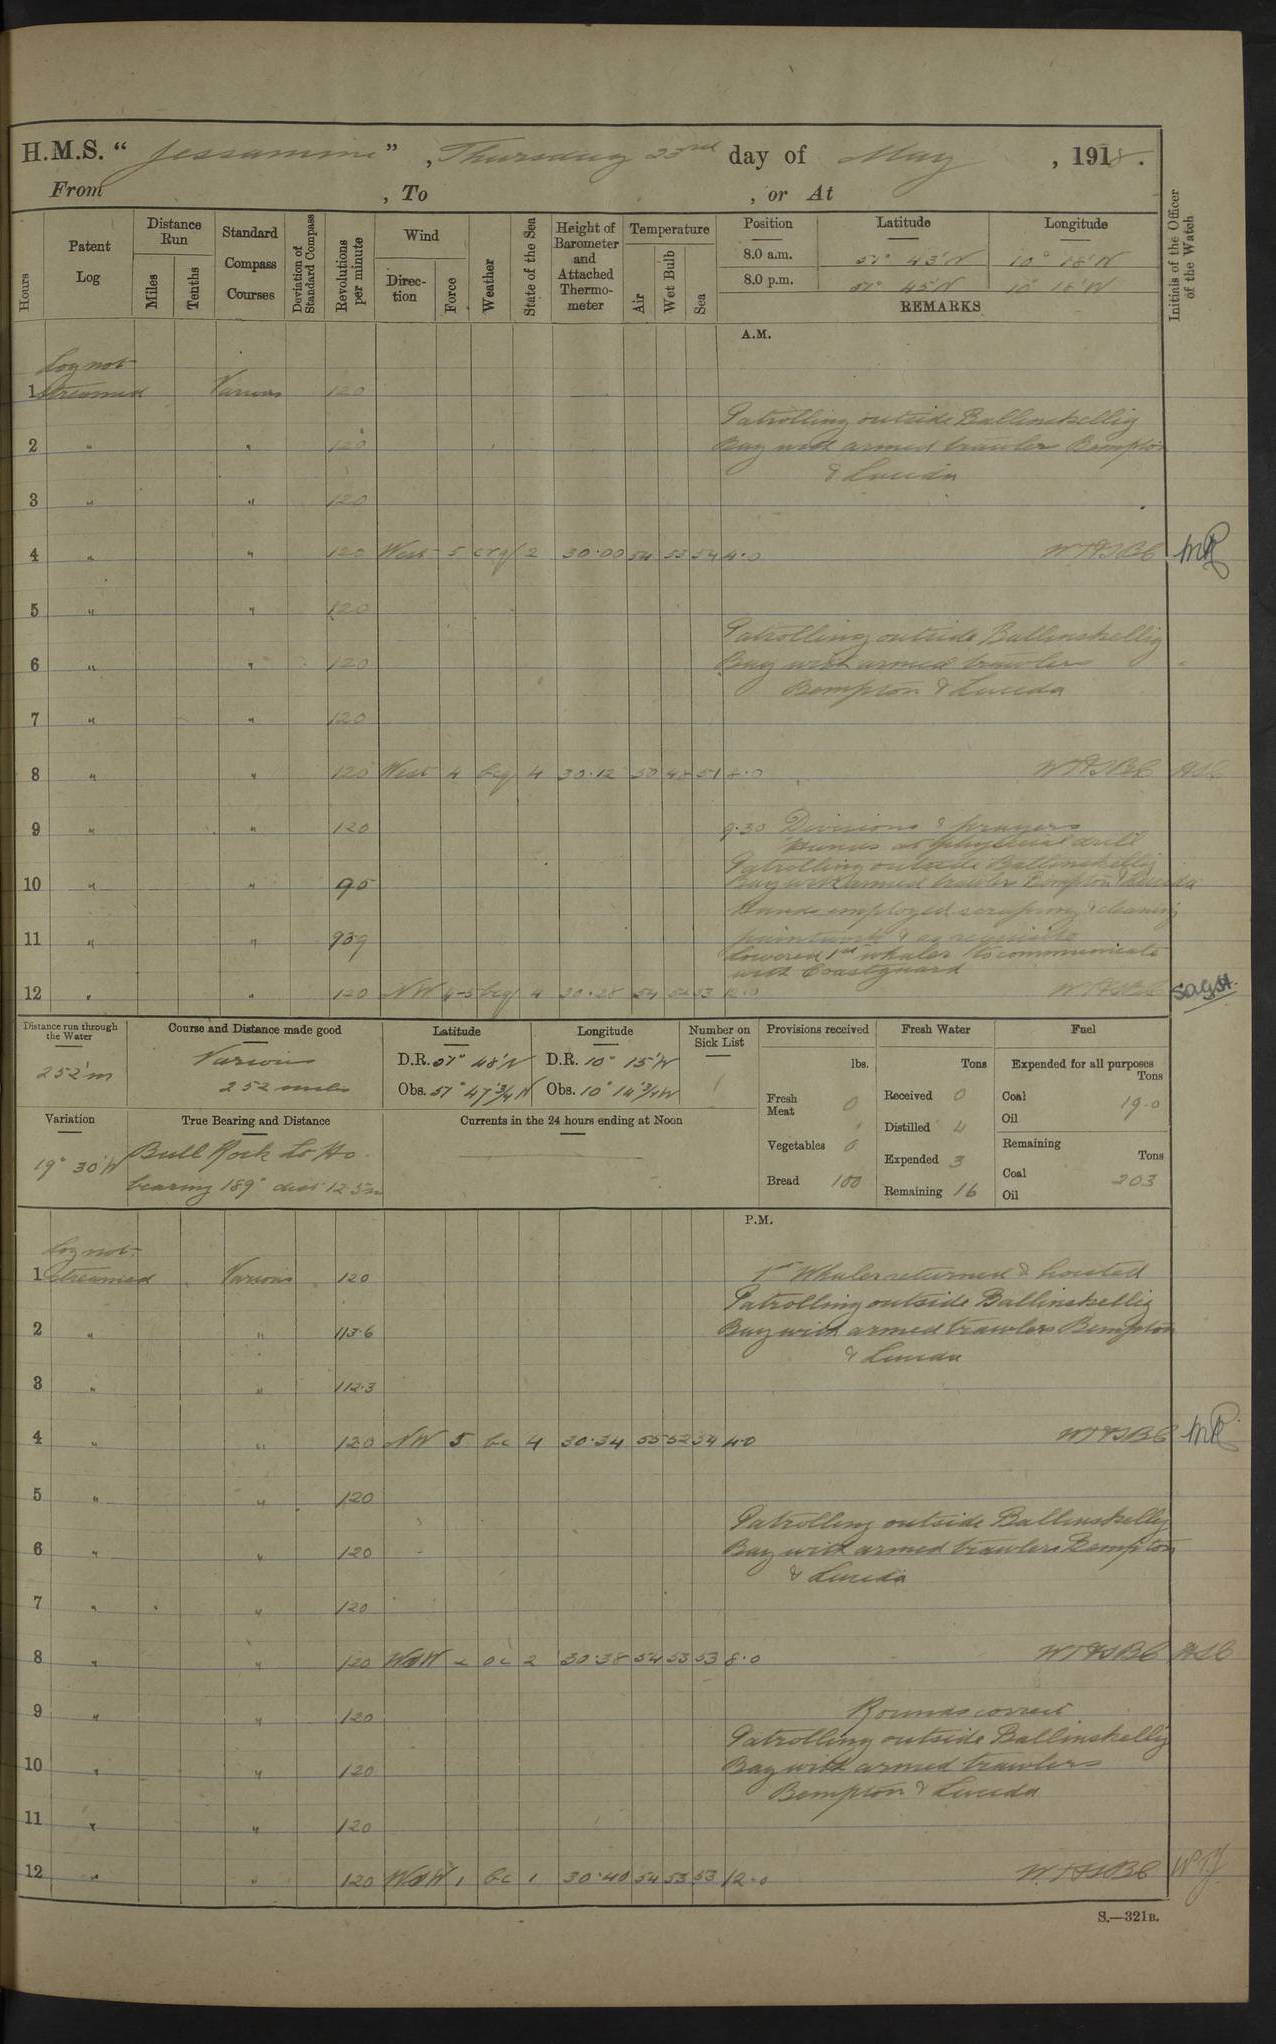 H.M.S. " Jessamine " , Thursday 23rd day of May , 1918 .
From , To , or At
Hours
Patent Log
Distance Run
Miles
Tenths
Standard Compass Courses
Deviation of Standard Compass
Revolutions per minute
Wind
Direction
Force
Weather
State of the Sea
Height of Barometer and Attached Thermometer
Temperature
Air
Wet Bulb
Sea
Position Latitude Longitude
8.0 a.m. 51° 43'N 10° 18'W
8.0 p.m. 51° 45'N 10° 18'W
REMARKS
Initials of the Officer of the Watch
A.M.
Log not
1 streamed Various 120
Patrolling outside Ballinskellig
2 " " 120 Bay with armed trawler Bempton
& Lucida
3 " " 120
4 " " 120 West 5 2 30.00 54 53 54 4.0 MR
5 " " 120
Patrolling outside Ballinskellig
6 " " 120 Bay with armed trawlers
Bempton & Lucida
7 " " 120
8 " " 120 West 4 bcq 4 30.12 50 48 51 8.0
9 " " 120 9.30 Divisions & prayers
Hands at physical drill
Patrolling outside Ballinskellig
10 " " 95 Bay with armed trawlers Bempton & Lucida
Hands employed scraping & cleaning
11 " " 93.9 paintwork & as requisite
Lowered 1st whaler to communicate
with Coastguard
12 " " 120 NW 4-5 bcq 4 30.28 54 52 53 12.0
Distance run through the Water
252'm
Course and Distance made good
Various
252 miles
Latitude
D.R. 51° 48'N
Obs. 51° 47¾'N
Longitude
D.R. 10° 15'W
Obs. 10° 14¾'W
Number on Sick List
1
Provisions received
lbs.
Fresh Meat 0
Vegetables 0
Bread 100
Fresh Water
Tons
Received 0
Distilled 4
Expended 3
Remaining 16
Fuel
Expended for all purposes
Tons
Coal 19.0
Oil
Remaining
Tons
Coal 203
Oil
Variation
19° 30'W
True Bearing and Distance
Bull Rock Lt Ho
bearing 189° dist 12.5m
Currents in the 24 hours ending at Noon
P.M.
Log not
1 streamed Various 120 1st Whaler returned & hoisted
Patrolling outside Ballinskellig
2 " " 113.6 Bay with armed trawlers Bempton
& Lucida
3 " " 112.3
4 " " 120 NW 5 bc 4 30.34 55 52 54 4.0 MR
5 " " 120
Patrolling outside Ballinskellig
6 " " 120 Bay with armed trawlers Bempton
& Lucida
7 " " 120
8 " " 120 2 30.38 54 53 53 8.0
9 " " 120 Rounds correct
Patrolling outside Ballinskellig
10 " " 120 Bay with armed trawlers
Bempton & Lucida
11 " " 120
12 " " 120 1 bc 1 30.40 54 53 53 12.0
S.—321B.